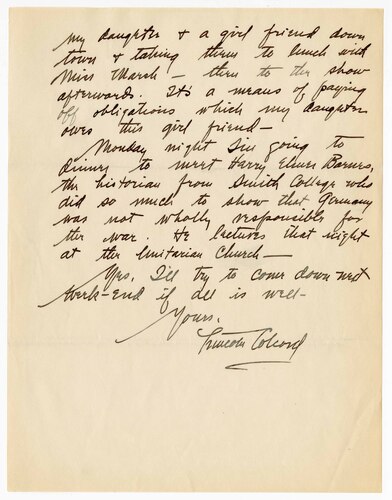 my daughter & a girl friend down
town & taking them to lunch with
Miss Marsh — then to the show
afterwards. It's a means of paying
off obligations which my daughter
owes this girl friend —
Monday night I'm going to
dinner to meet Harry Elmer Barnes,
the historian from Smith College who
did so much to show that Germany
was not wholly responsible for
the war. He lectures that night
at the Unitarian Church —
Yes, I'll try to come down next
week-end if all is well —
Yours,
Lincoln Colcord